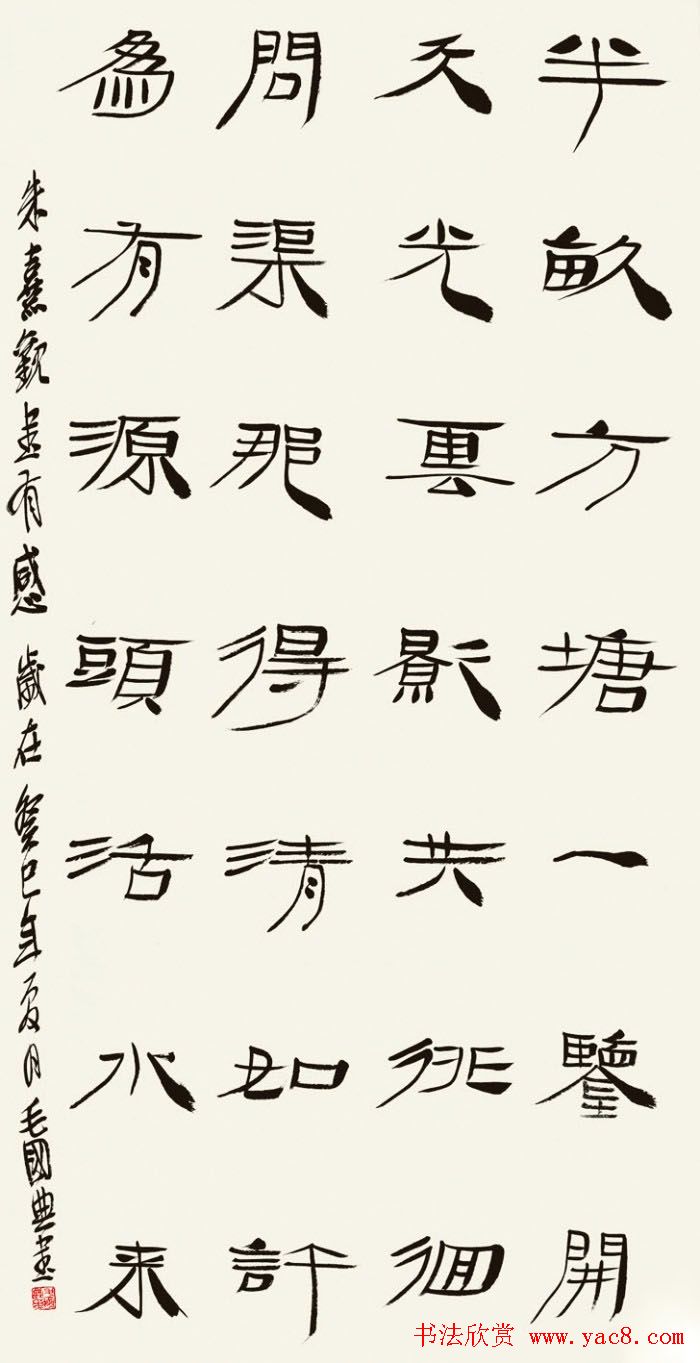 半畝方塘一鑒開
天光雲影共徘徊
問渠那得清如許
為有源頭活水來
朱熹觀書有感 歲在癸巳年夏月毛國典書
书法欣赏 www.yac8.com